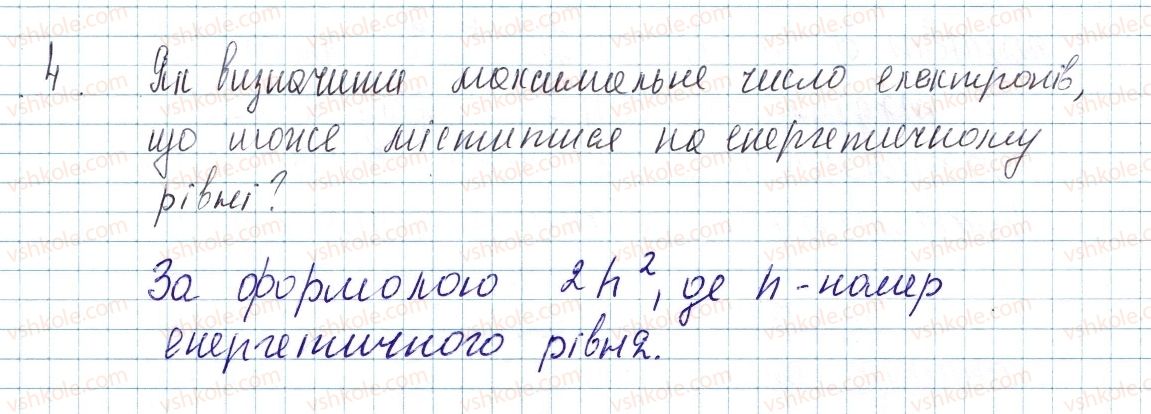 4. Як визначити максимальне число електронів,
що може міститися на енергетичному
рівні?
За формолою 2n², де n - номер
енергетичного рівня.